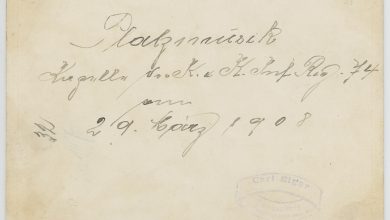 Platzmusik
Kapelle der K. u. K. Inf. Reg. 74
am
29. März 1908
Carl